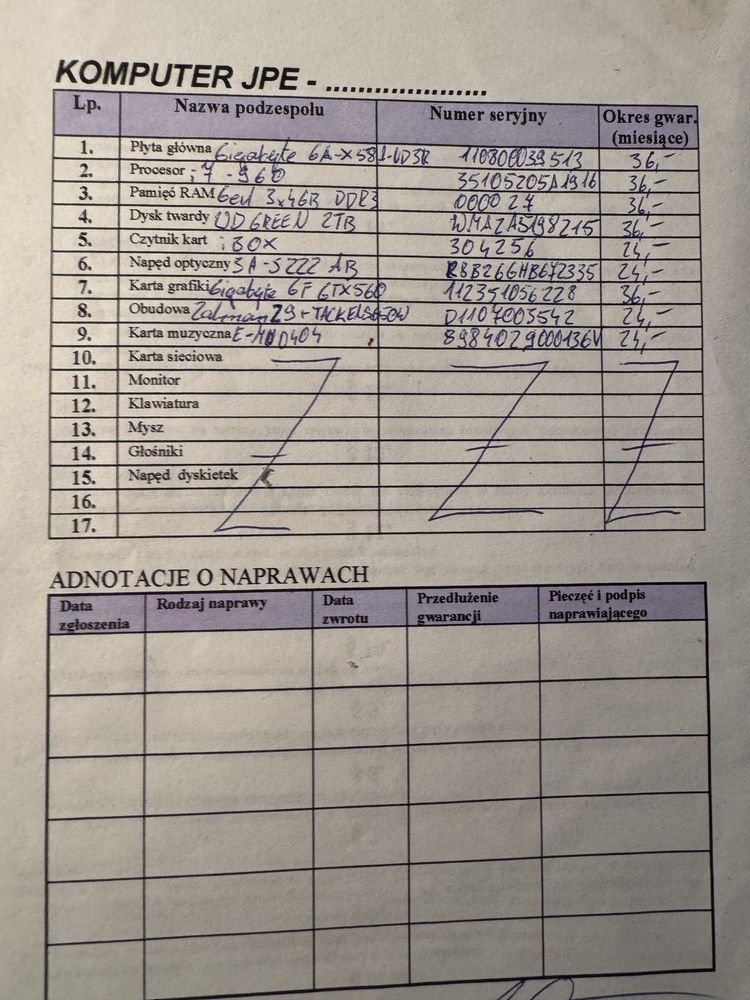 KOMPUTER JPE - ....................
Lp. Nazwa podzespołu Numer seryjny Okres gwar. (miesiące)
1. Płyta główna Gigabyte GA-X58A-UD3R 110800039513 36,-
2. Procesor i7-960 35105205A1916 36,-
3. Pamięć RAM Geil 3x4GB DDR3 000027 36,-
4. Dysk twardy WD GREEN 2TB WMAZA5198215 36,-
5. Czytnik kart iBOX 304256 24,-
6. Napęd optyczny SA-S222 AB R8B26GHB672335 24,-
7. Karta grafiki Gigabyte GF GTX560 112351056228 36,-
8. Obudowa Zalman Z9 + D1107003542 24,-
9. Karta muzyczna E-MU 0404 8984029000136V 24,-
10. Karta sieciowa
11. Monitor
12. Klawiatura
13. Mysz
14. Głośniki
15. Napęd dyskietek
16.
17.
ADNOTACJE O NAPRAWACH
Data zgłoszenia Rodzaj naprawy Data zwrotu Przedłużenie gwarancji Pieczęć i podpis naprawiającego